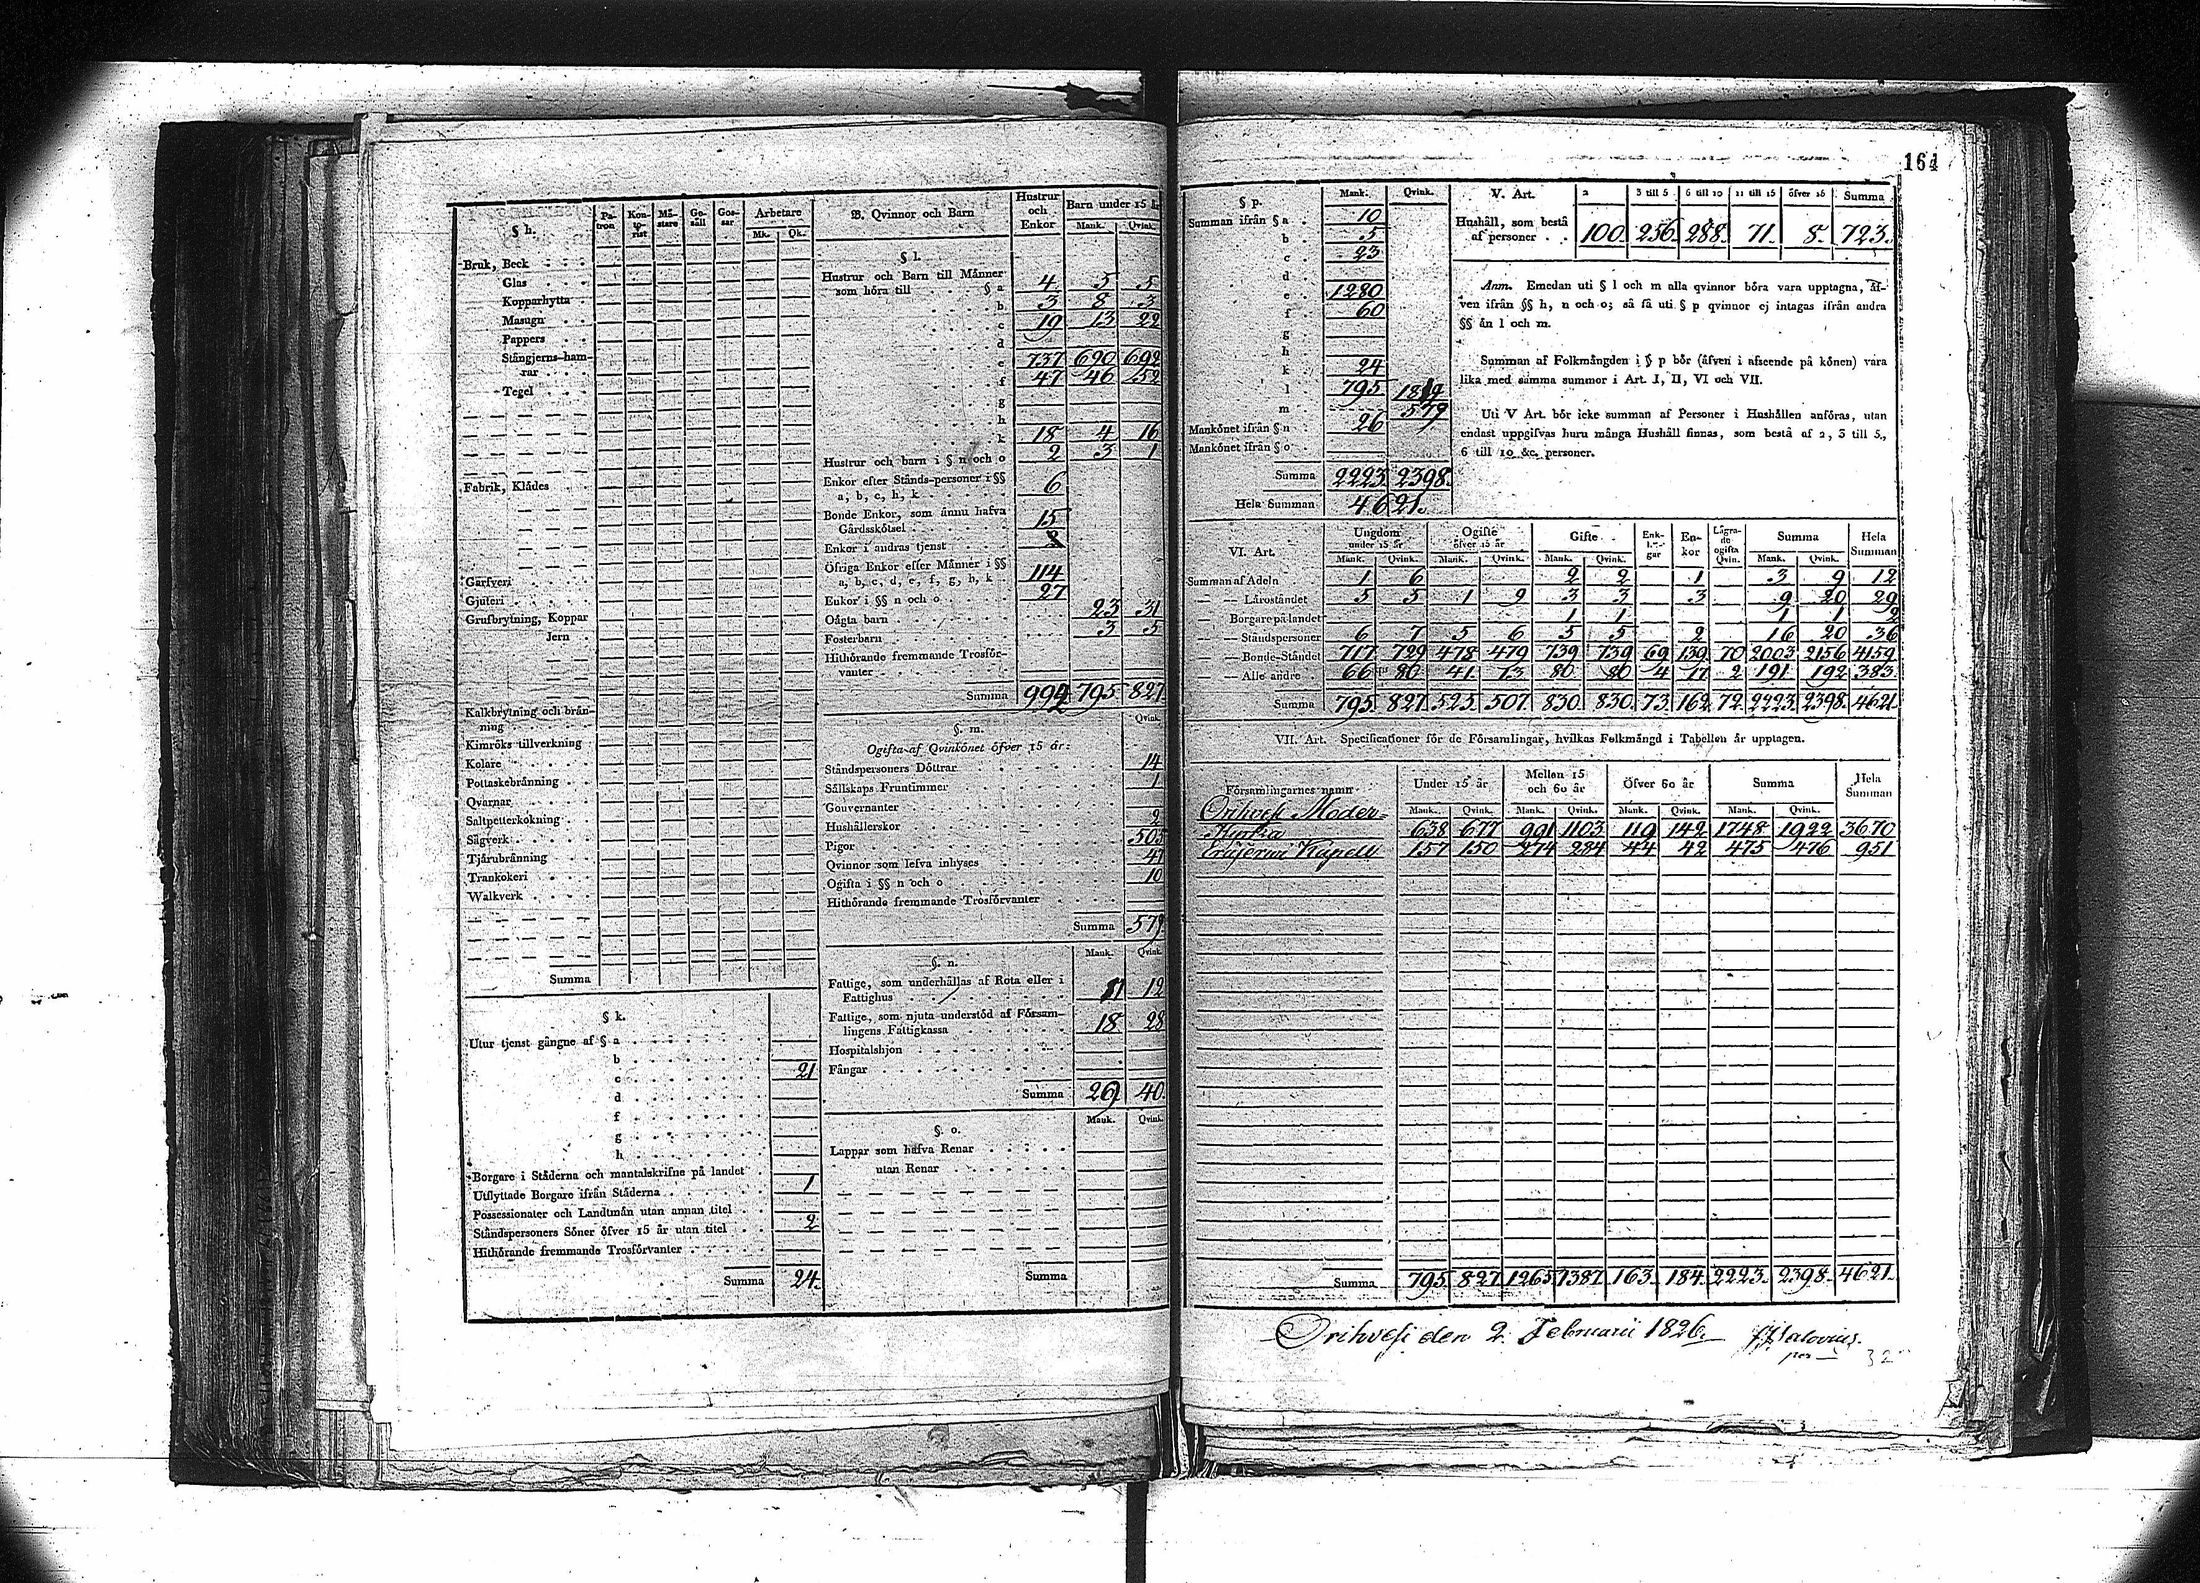 164
§ h.
Patron
Konto-rist
Mä-stare
Ge-säll
Gos-sar
Arbetare
Mk. Qk.
Bruk, Beck
Glas
Kopparhytta
Masugn
Pappers
Stångjerns-ham-
rar
Tegel
Fabrik, Klädes
Garfveri
Gjuteri
Grufbrytning, Koppar
Jern
Kalkbrytning och brän-
ning
Kimröks tillverkning
Kolare
Pottaskebränning
Qvarnar
Saltpetterkokning
Sågverk
Tjärubränning
Trankokeri
Walkverk
Summa
§ k.
Utur tjenst gångne af § a
b
c 21
d
f
g
h
Borgare i Städerna och mantalskrifne på landet 1
Utflyttade Borgare ifrån Städerna
Possessionater och Landtmän utan annan titel
Ståndspersoners Söner öfver 15 år utan titel 2
Hithörande fremmande Trosförvanter
Summa 24.
B. Qvinnor och Barn
Hustrur och Enkor
Barn under 15 år
Mank. Qvink.
§ l.
Hustrur och Barn till Männer
som höra till § a 4 5 5
b 3 8 3
c 19 13 22
d
e 737 690 692
f 47 46 52
g
h
k 18 4 16
Hustrur och barn i § n och o 2 3 1
Enkor efter Stånds-personer i §§
a, b, c, h, k 6
Bonde Enkor, som ännu hafva
Gårdsskötsel 15
Enkor i andras tjenst
Öfriga Enkor efter Männer i §§
a, b, c, d, e, f, g, h, k 114
Enkor i §§ n och o 27
Oägta barn 23 31
Fosterbarn 3 5
Hithörande fremmande Trosför-
vanter
Summa 992 795 827
§. m.
Qvink.
Ogifta af Qvinkönet öfver 15 år:
Ståndspersoners Döttrar 14
Sällskaps Fruntimmer 1
Gouvernanter
Hushållerskor 2
Pigor 505
Qvinnor som lefva inhyses 47
Ogifta i §§ n och o 10
Hithörande fremmande Trosförvanter
Summa 579
§. n.
Mank. Qvink.
Fattige, som underhållas af Rota eller i
Fattighus 12
Fattige, som njuta understöd af Försam-
lingens Fattigkassa 18 28
Hospitalshjon
Fångar
Summa 40.
§. o.
Mank. Qvink.
Lappar som hafva Renar
utan Renar
Summa
§ p.
Mank. Qvink.
Summan ifrån § a 10
b 5
c 23
d
e 1280
f 60
g
h
k 24
l 795 1819
m 579
Mankönet ifrån § n 26
Mankönet ifrån § o
Summa 2223 2398.
Hela Summan 4621.
V. Art. 2 3 till 5 6 till 10 11 till 15 öfver 16 Summa
Hushåll, som bestå
af personer 100. 256. 288. 71. 8. 723.
Anm. Emedan uti § l och m alla qvinnor böra vara upptagna, äf-
ven ifrån §§ h, n och o; så få uti § p qvinnor ej intagas ifrån andra
§§ än l och m.
Summan af Folkmängden i § p bör (äfven i afseende på könen) vara
lika med samma summor i Art. I, II, VI och VII.
Uti V Art. bör icke summan af Personer i Hushållen anföras, utan
endast uppgifvas huru många Hushåll finnas, som bestå af 2, 3 till 5.,
6 till 10 &c. personer.
VI. Art.
Ungdom under 15 år
Ogifte öfver 15 år
Gifte
Enk-lin-gar
En-kor
Lägra-de ogifta Qvin.
Summa
Hela Summan
Mank. Qvink. Mank. Qvink. Mank. Qvink. Mank. Qvink.
Summan af Adeln 1 6 2 2 1 3 9 12
Läroståndet 5 5 1 9 3 3 3 9 20 29
Borgare på landet 1 1 1 1 2
Ståndspersoner 6 7 5 6 5 5 2 16 20 36
Bonde-Ståndet 717 729 478 479 739 739 69 139 70 2003 2156 4159
Alle andre 66 80 41 13 80 80 4 17 2 191 192 383
Summa 795. 827 525 507 830. 830. 73. 162 72. 2223. 2398. 4621
VII. Art. Specificationer för de Församlingar, hvilkas Folkmängd i Tabellen är upptagen.
Församlingarnes namn
Under 15 år
Mellan 15 och 60 år
Öfver 60 år
Summa
Hela Summan
Mank. Qvink. Mank. Qvink. Mank. Qvink. Mank. Qvink.
Orihvesi Moder-
Kyrka 638 677 991 1103 119 142 1748 1922 3670
Kapell 157 150 274 284 44 42 475 476 951
Summa 795. 827 1265 1387 163. 184. 2223. 2398. 4621.
Orihvesi den 2. Februarii 1826.